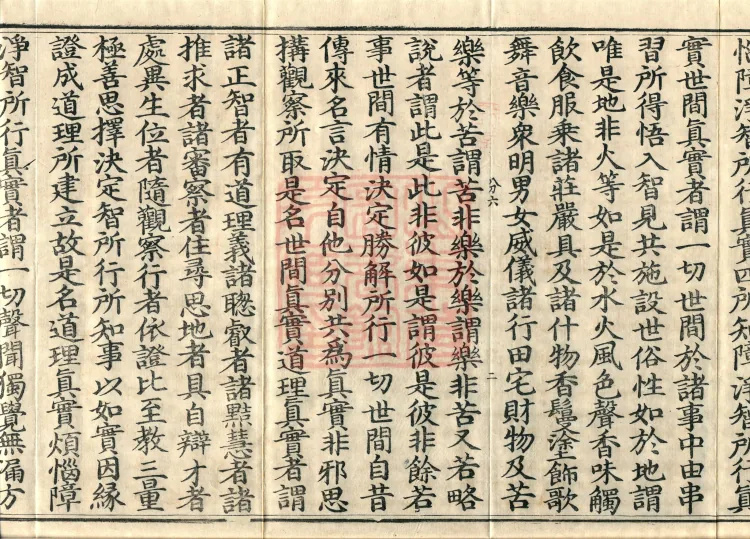 惱障淨智所行眞實四所知障淨智所行眞
實世間眞實者謂一切世間於諸事中由串
習所得悟入智見共施設世俗性如於地謂
唯是地非火等如是於水火風色聲香味觸
飮食服乘諸莊嚴具及諸什物香鬘塗飾歌
舞音樂衆明男女威儀諸行田宅財物及苦
八分六 二
樂等於苦謂苦非樂於樂謂樂非苦又若略
說者謂此是此非彼如是謂彼是彼非餘若
事世間有情決定勝解所行一切世間自昔
傳來名言決定自他分別共爲眞實非邪思
搆觀察所取是名世間眞實道理眞實者謂
諸正智者有道理義諸聰叡者諸黠慧者諸
推求者諸審察者住尋思地者具自辯才者
處異生位者隨觀察行者依證比至教三量
極善思擇決定智所行所知事以如實因緣
證成道理所建立故是名道理眞實煩惱障
淨智所行眞實者謂一切聲聞獨覺無漏方